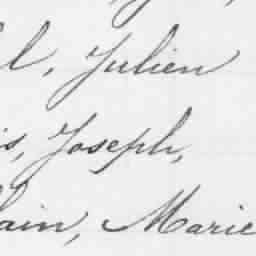 l, Julien
is, Joseph,
lain, Marie